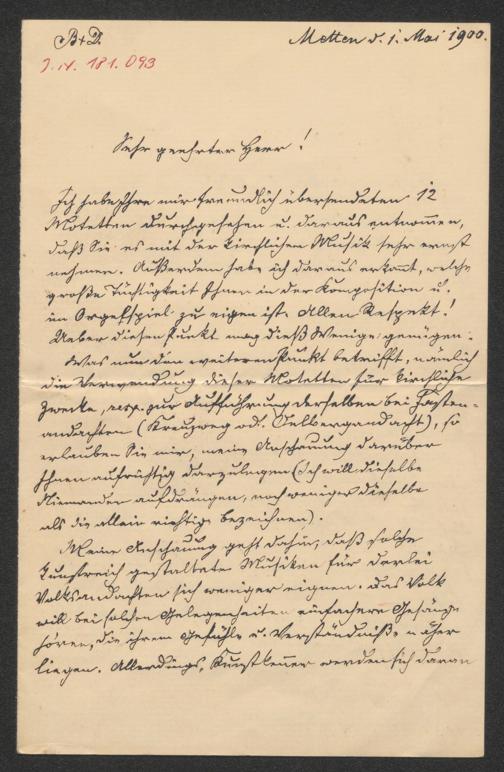 B+D.
J.N. 181.093
Metten d. 1. Mai 1900.
Sehr geehrter Herr!
Ich habe Ihre mir freundlich übersendeten 12
Motetten durchgesehen u. daraus entnommen,
daß Sie es mit der kirchlichen Musik sehr ernst
nehmen. Außerdem habe ich daraus erkannt, welche
große Tüchtigkeit Ihnen in der Komposition u.
im Orgelspiel zu eigen ist. Allen Respekt!
Ueber diesen Punkt mag dieß Wenige genügen.
Was nun den weiteren Punkt betrifft, nämlich
die Verwendung dieser Motetten für kirchliche
Zwecke, resp. zur Aufführung derselben bei Fasten-
andachten (Kreuzweg od. Oelbergandacht), so
erlauben Sie mir, meine Anschauung darüber
Ihnen aufrichtig darzulegen (Ich will dieselbe
Niemanden aufdrängen, noch weniger dieselbe
als die allein richtige bezeichnen).
Meine Anschauung geht dahin, daß solche
kunstreich gestaltete Musiken für derlei
Volksandachten sich weniger eignen. Das Volk
will bei solchen Gelegenheiten einfachere Gesänge
hören, die ihrem Gefühle u. Verständniße näher
liegen. Allerdings, Kunstkenner werden sich daran